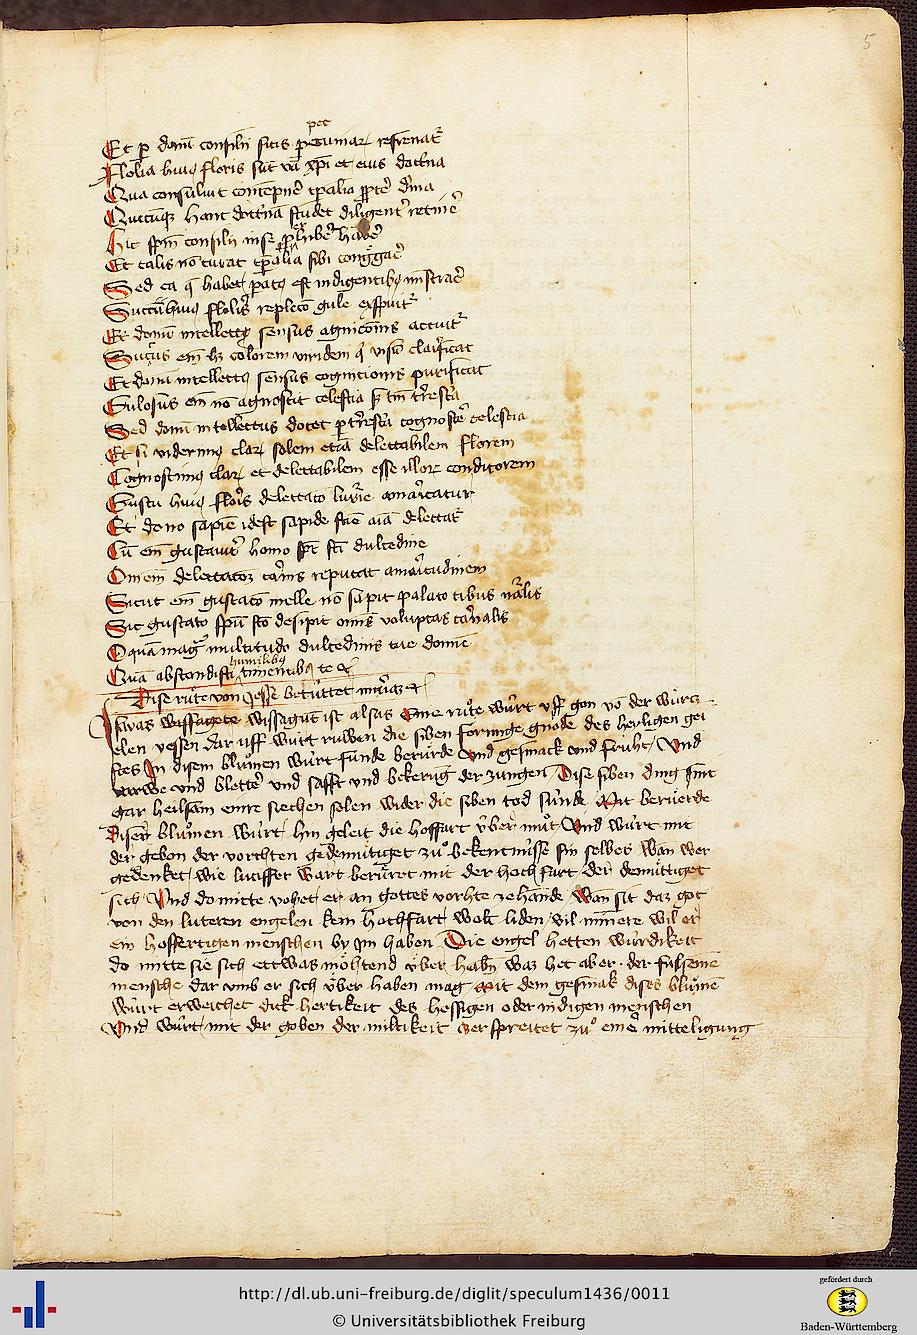 5
pec
Et p donū consilii sitis pecuniaꝝ refrenat᷑
Folia huiꝰ floris sūt v̄ba xp̄i et eius doctͥna
Qua consuluit contēpnē tp̄alia ꝓpt̄ dīna
Quicūqꝫ hanc doctͥnā studet diligent᷑ retinē
Hic sp̄m consilii in se ꝓhibet᷑ habē
Et talis nō curat tp̄alia sibi conggaē
Sed ea q̄ habet patꝰ est indigentibꝰ mīstraē
Succū huiꝰ floris replecō gule exspuit᷑
Et donū intellectꝰ sensus agnicōnis acuit᷑
Sucꝰus em̄ hꝫ colorem viridem q̄ visū clarificat
Et donū intellectꝰ sensus cognicionis purificat
Gulosus em̄ nō agnoscit celestia sꝫ tm̄ t͛restͥa
Sed donū intellectus docet p t͛restͥa cognoscē celestia
Et si viderimꝰ claꝝ solem etiā delectabilem florem
Cognoscimꝰ claꝝ et delectabilem esse illoꝝ conditorem
Gustu huiꝰ floris delectatō luxͥie amaricatur
Et dono sapiē idest sapide sciē aīa delectat᷑
Cū em̄ gustauit᷑ homo sp̄c sc̄i dulcedinē
Omnem delectatōꝫ carnis reputat amaritudinem
Sicut em̄ gustato melle nō sapit palato cibus nālis
Sic gustato sp̄u sc̄o desipit om̄is voluptas carnalis
O quā mag᷑ multitudo dulcedinis tue domīe
humilibꝰ
Quā abscondisti timentibꝰ te &
Dise rͦute von yesse betúttet mr̄iaꝫ &
Iswas wissagete wissagūt ist alsus Eine růte wúrt vsz gon vō der wúrcz
elen yessen dar uff wúrt ruwen die siben formige gnode des heyligen gei
stes In disem blůmen wúrt funde berúrde vnd gesmack vnd fruht Vnd
varwe vnd bletter vnd safft vnd bekerūg der zungen Dise siben ding sint
gar heilsam einre siechen selen wider die siben tod súnde Mit berúerde
diser blůmen wúrt hin geleit die hoffart v́ber můt Vnd wúrt mit
der gebon der vorchten gedemútiget zů bekentnisse sin selbes Wan wer
gedenket wie lucifer wart berúret mit der hoch fart der demútiget
sich Vnd do mitte vohet er an gottes vorhte ze hande Wan sit daz got
von den luteren engelen kein hochfart wolt liden vil minnere wil er
ein hoffertigen menschen by jm haben Die engel hetten wúrdikeit
do mitte sie sich ettwas möhtend v́ber hebn waz het aber der fulsene
mensche dar vmb er sich v́ber haben mag Mit dem gesmak dises blůmē
wúrt erweichet dick hertikeit des hessigen oder nidigen menschen
Vnd wúrt mit der goben der miltikeit zerspreitet zů einē mitteligung
http://dl.ub.uni-freiburg.de/diglit/speculum1436/0011
© Universitätsbibliothek Freiburg
gefördert durch
Baden-Württemberg